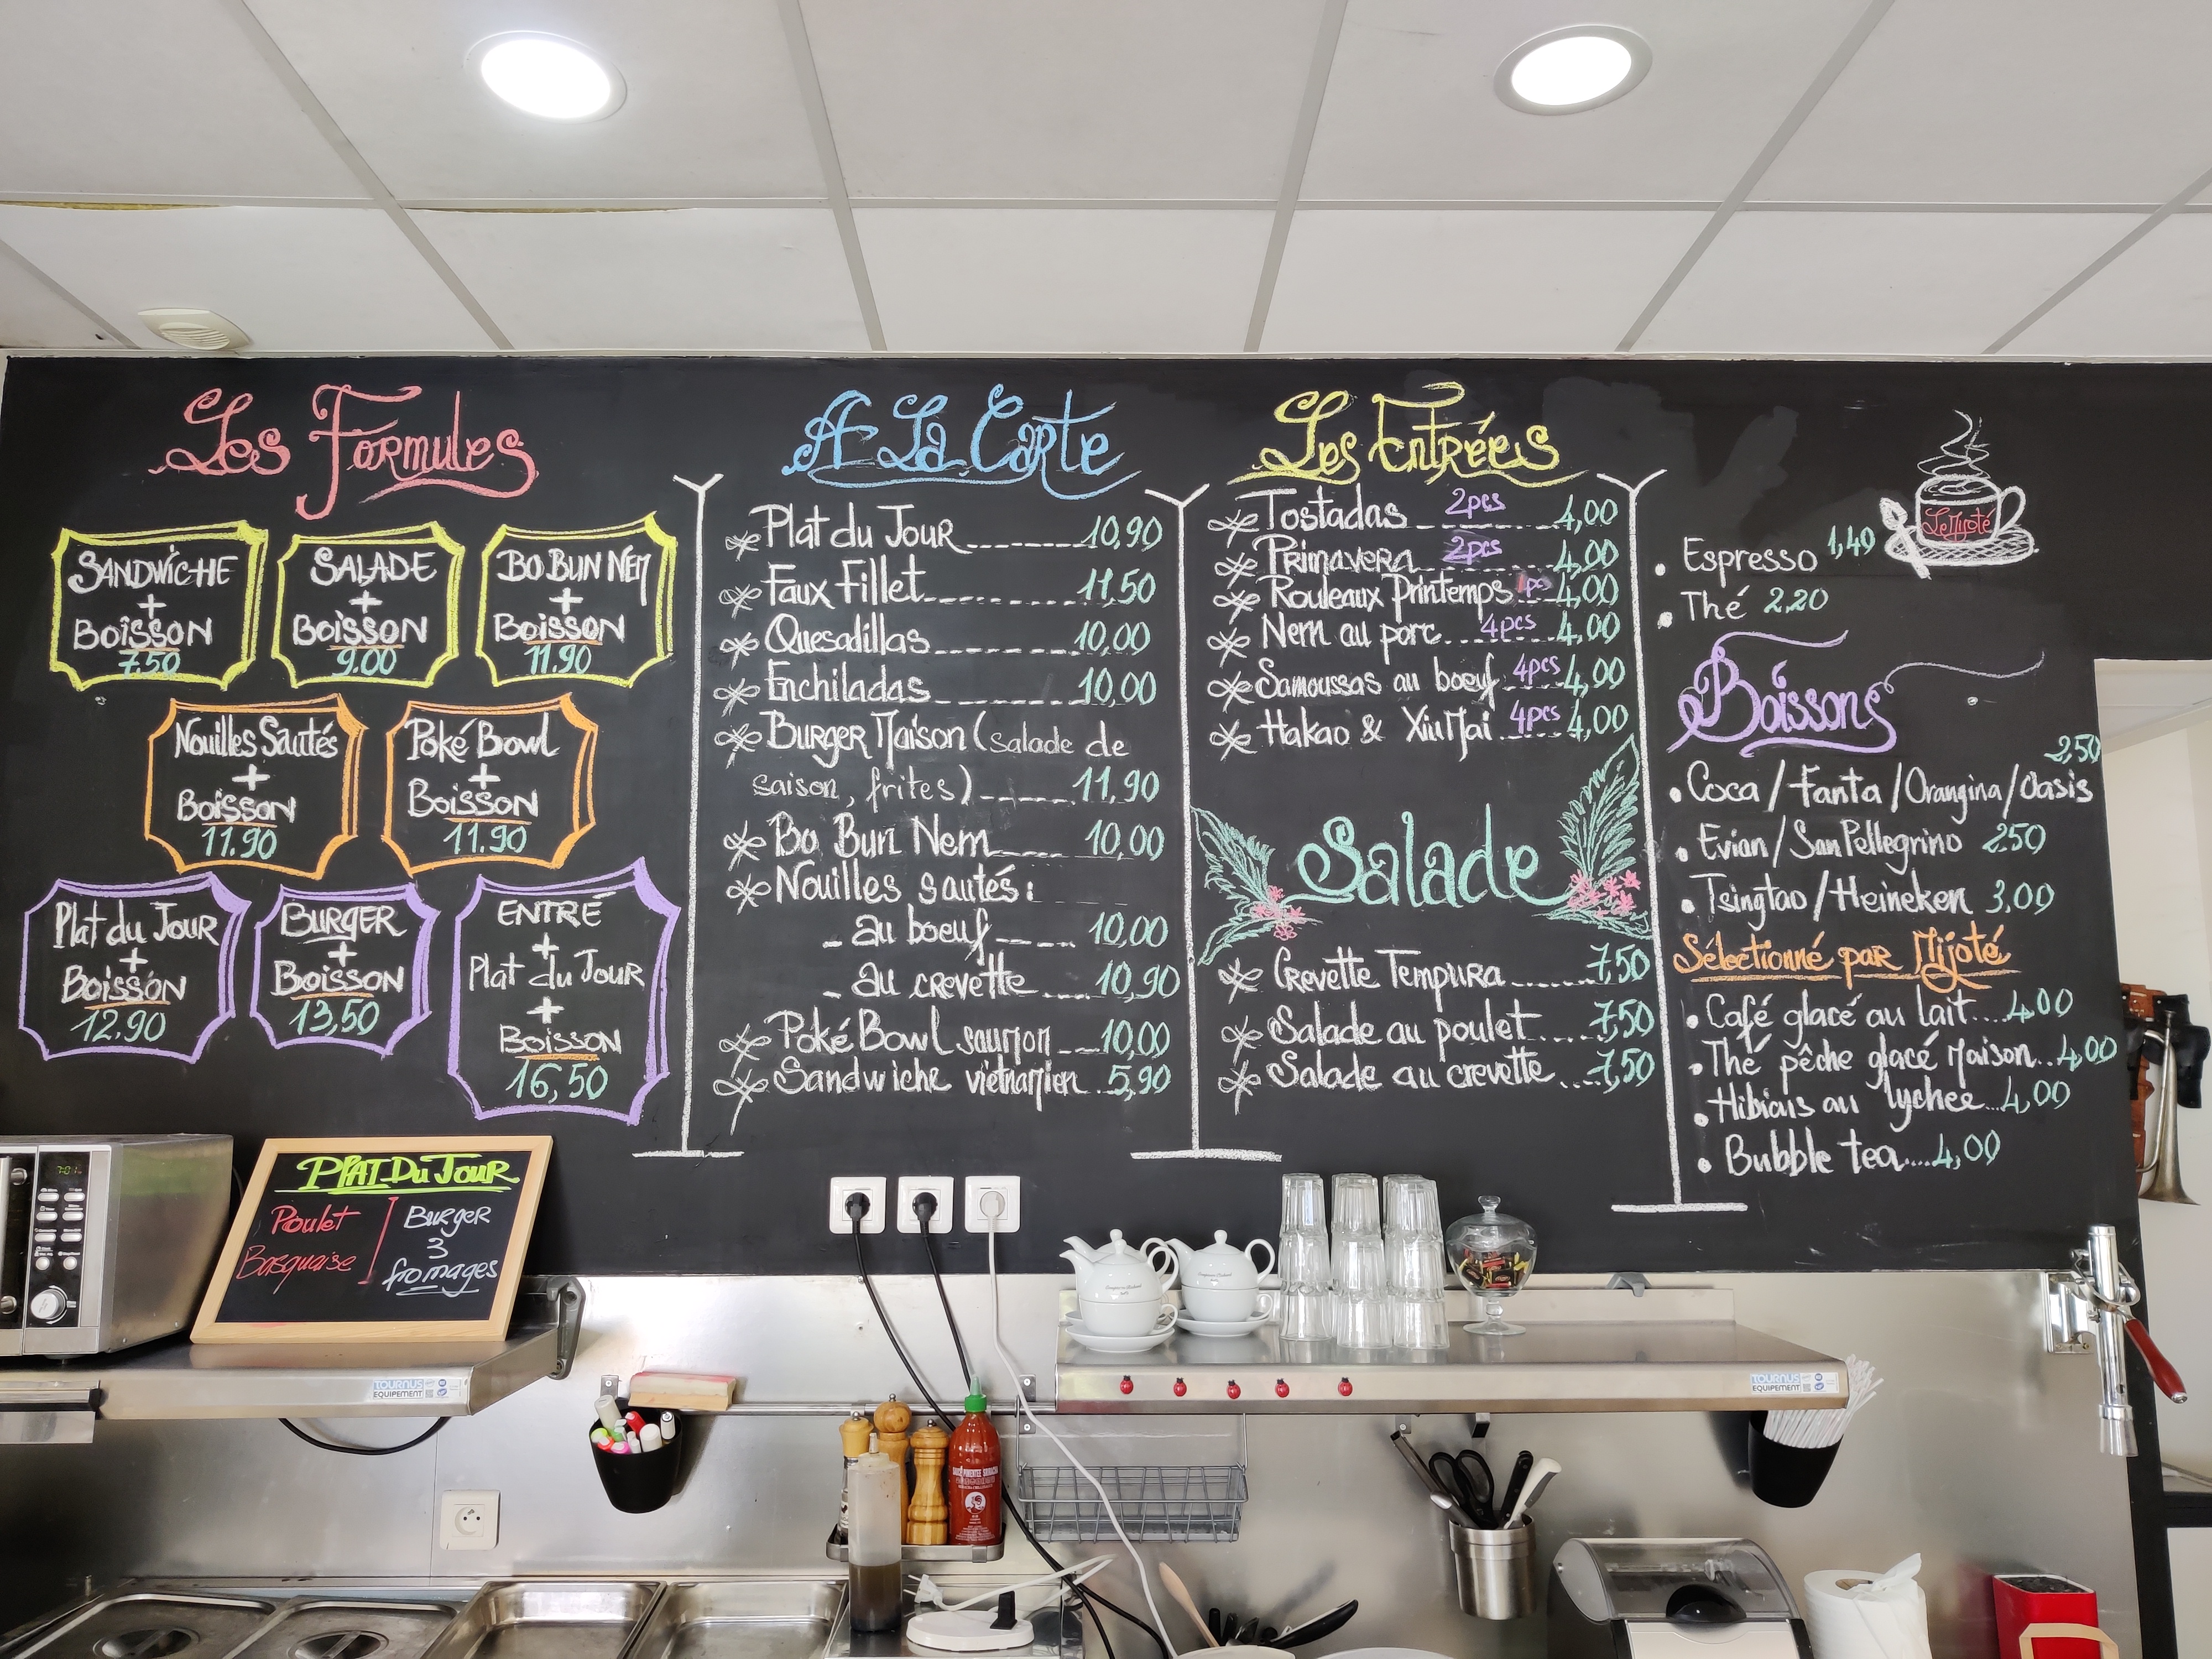 Les Formules
SANDWICHE
+
BOISSON
7.50
SALADE
+
BOISSON
9.00
BO BUN NEM
+
BOISSON
11.90
Nouilles Sautés
+
BOISSON
11.90
Poké Bowl
+
BOISSON
11.90
Plat du Jour
+
BOISSON
12,90
BURGER
+
BOISSON
13,50
ENTRÉ
+
Plat du Jour
+
BOISSON
16,50
A La Carte
Plat du Jour 10,90
Faux Fillet 11,50
Quesadillas 10,00
Enchiladas 10,00
Burger Maison (salade de
saison, frites) 11,90
Bo Bun Nem 10,00
Nouilles sautés:
- au boeuf 10,00
- au crevette 10,90
Poké Bowl saumon 10,00
Sandwiche vietnamien 5,90
Les Entrées
Tostadas 2pcs 4,00
Primavera 2pcs 4,00
Rouleaux Printemps 1pc 4,00
Nem au porc 4pcs 4,00
Samoussas au boeuf 4pcs 4,00
Hakao & XiuMai 4pcs 4,00
Salade
Crevette Tempura 7,50
Salade au poulet 7,50
Salade au crevette 7,50
LeMijoté
Espresso 1,40
Thé 2,20
Boissons
2,50
Coca/Fanta/Orangina/Oasis
Evian/San Pellegrino 2.50
Tsingtao/Heineken 3,00
Sélectionné par Mijoté
Café glacé au lait....4,00
Thé pêche glacé Maison..4,00
Hibiais au lychee...4,00
Bubble tea....4,00
PlAT Du JOUR
Poulet
Basquaise
Burger
3
fromages
TOURNUS
EQUIPEMENT
TOURNUS
EQUIPEMENT